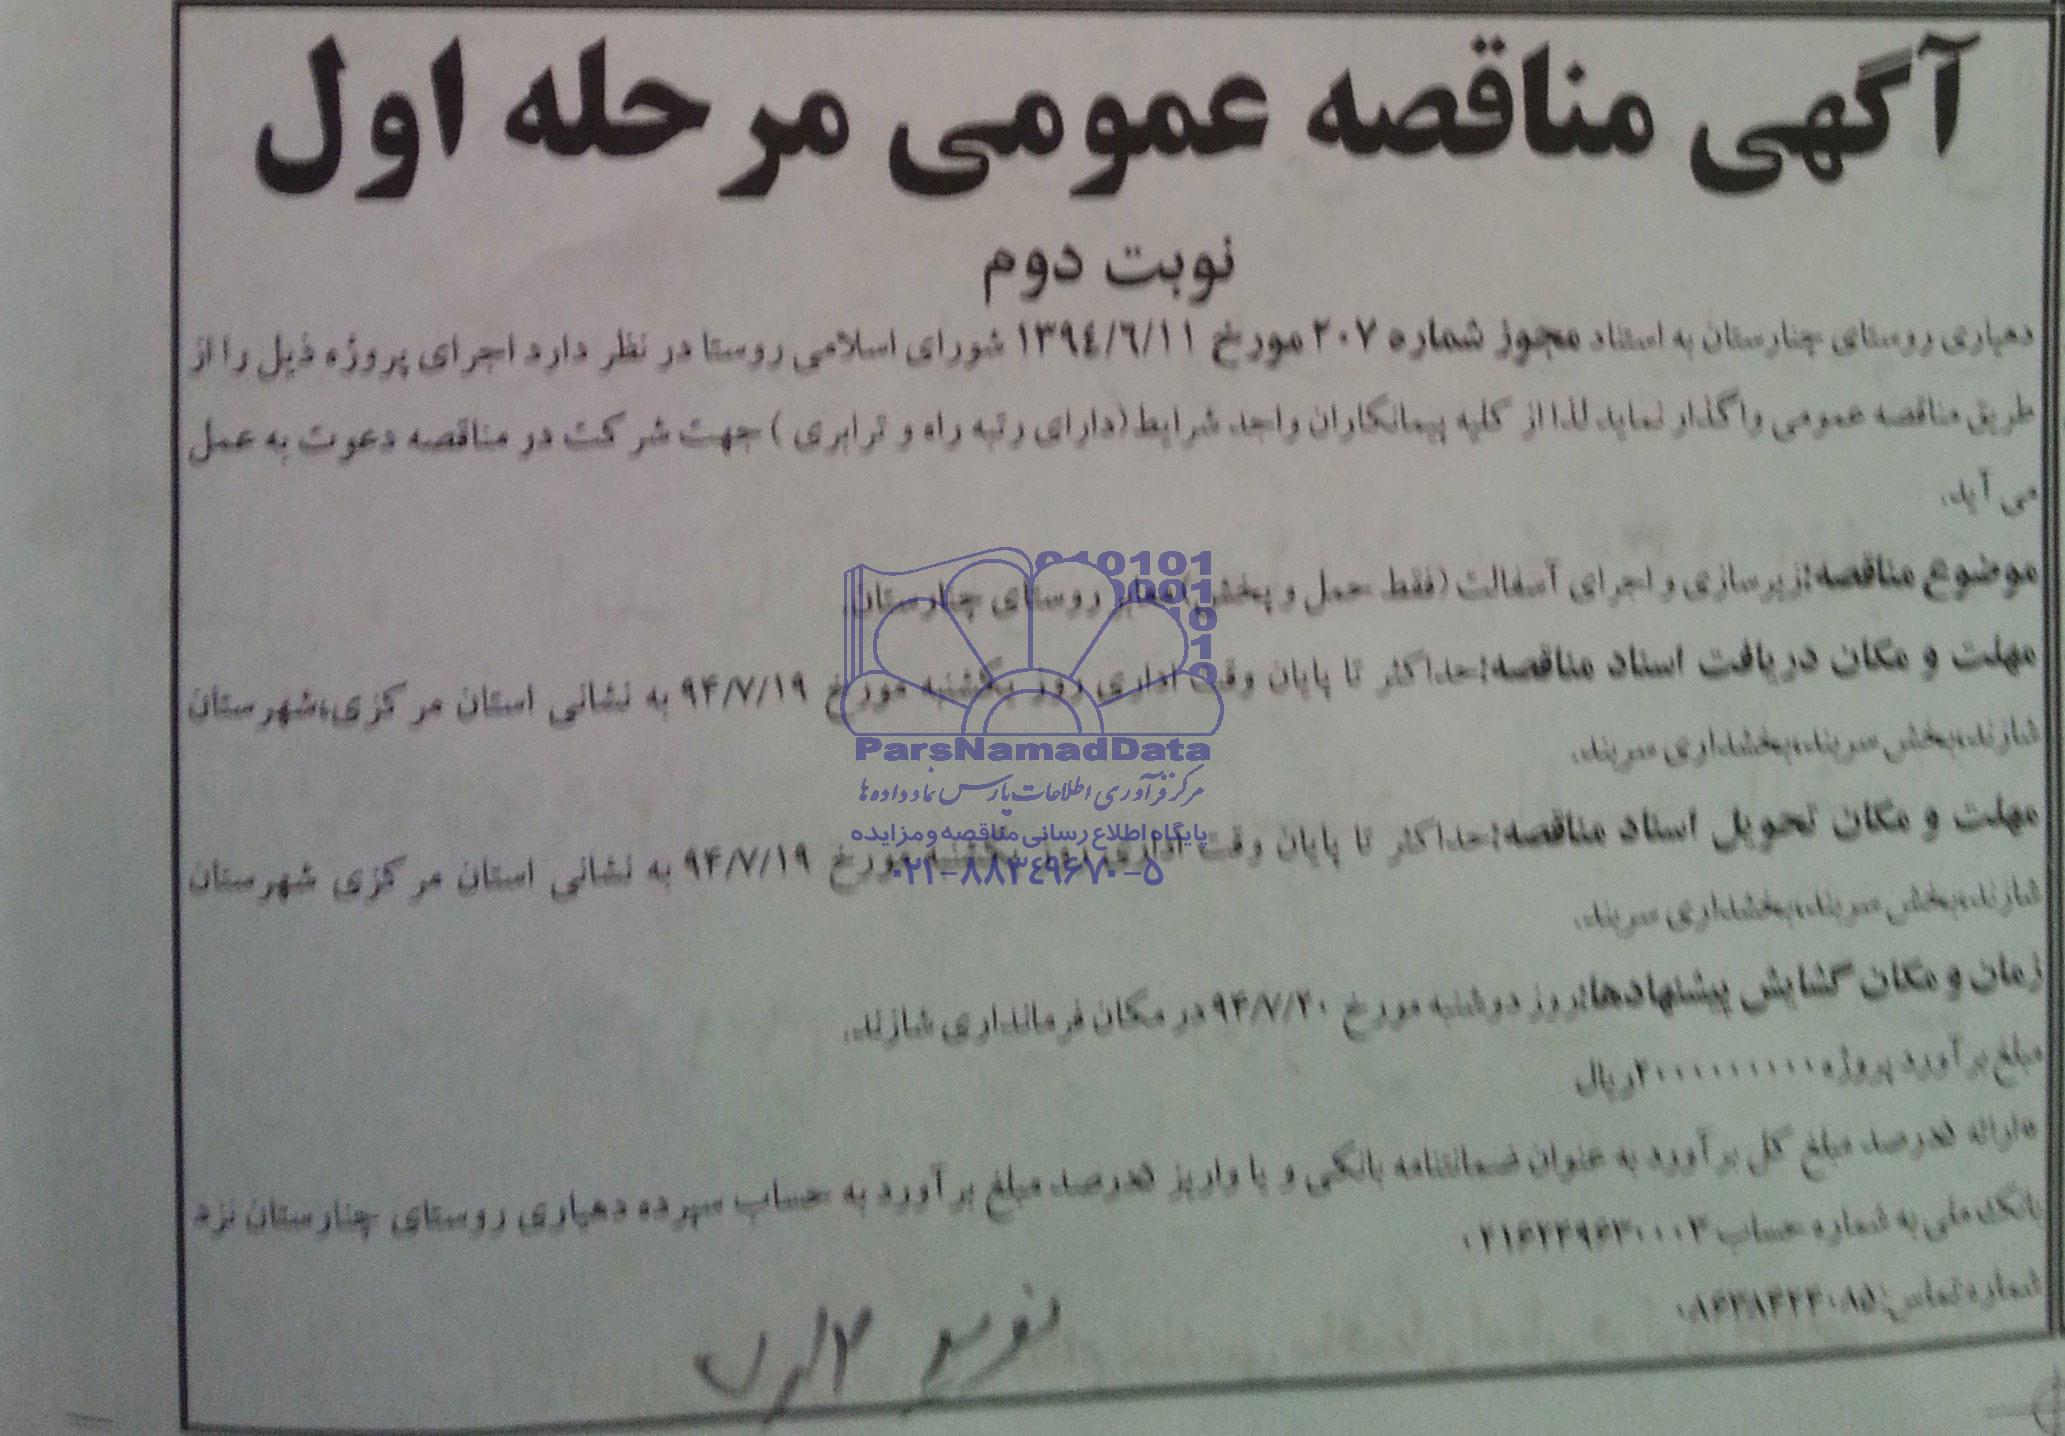 آگهی مناقصه عمومی مرحله اول
نوبت دوم
دهیاری روستای چنارستان به استناد مجوز شماره ۲۰۷ مورخ ۱۳۹٤/٦/۱۱ شورای اسلامی روستا در نظر دارد اجرای پروژه ذیل را از
طریق مناقصه عمومی واگذار نماید، لذا از کلیه پیمانکاران واجد شرایط (دارای رتبه راه و ترابری ) جهت شرکت در مناقصه دعوت به عمل
می آید.
موضوع مناقصه: زیرسازی و اجرای آسفالت (فقط حمل و پخش) معابر روستای چنارستان.
مهلت و مکان دریافت اسناد مناقصه: حداکثر تا پایان وقت اداری روز یکشنبه مورخ ۹۴/۷/۱۹ به نشانی استان مرکزی، شهرستان
شازند، بخش سربند، بخشداری سربند.
مهلت و مکان تحویل اسناد مناقصه: حداکثر تا پایان وقت اداری روز یکشنبه مورخ ۹۴/۷/۱۹ به نشانی استان مرکزی شهرستان
شازند، بخش سربند، بخشداری سربند.
زمان و مکان گشایش پیشنهادها: روز دوشنبه مورخ ۹۴/۷/۲۰ در مکان فرمانداری شازند.
مبلغ برآورد پروژه ریال
ارائه ۵درصد مبلغ کل برآورد به عنوان ضمانتنامه بانکی و یا واریز ۵درصد مبلغ برآورد به حساب سپرده دهیاری روستای چنارستان نزد
بانک ملی به شماره حساب
شماره تماس:
010101
ParsNamadData
مرکز فرآوری اطلاعات پارس نماد داده‌ها
پایگاه اطلاع رسانی مناقصه و مزایده
۰۲۱-۸۸۳٤۹۶۷۰-۵